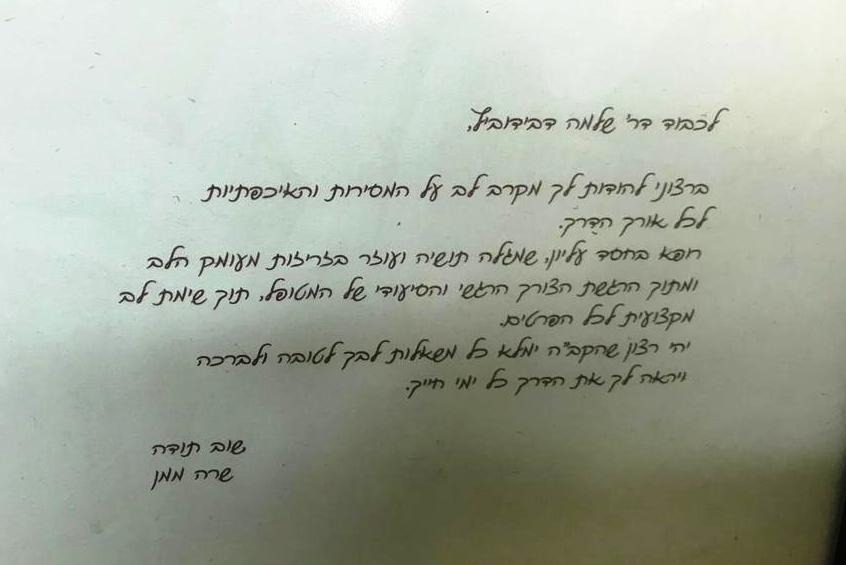 לכבוד דר' שלמה דבידוביץ,
ברצוני להודות לך מקרב לב על המסירות והאיכפתיות
לכל אורך הדרך.
רופא בחסד עליון, שמגלה תושיה ועוזר בזריזות מעומק הלב
ומתוך הרגשת הצורך הרגשי והסיעודי של המטופל, תוך שימת לב
מקצועית לכל הפרטים.
יהי רצון שהקב"ה ימלא כל משאלות לבך לטובה ולברכה
ויראה לך את הדרך כל ימי חייך.
שוב תודה
שרה ממן